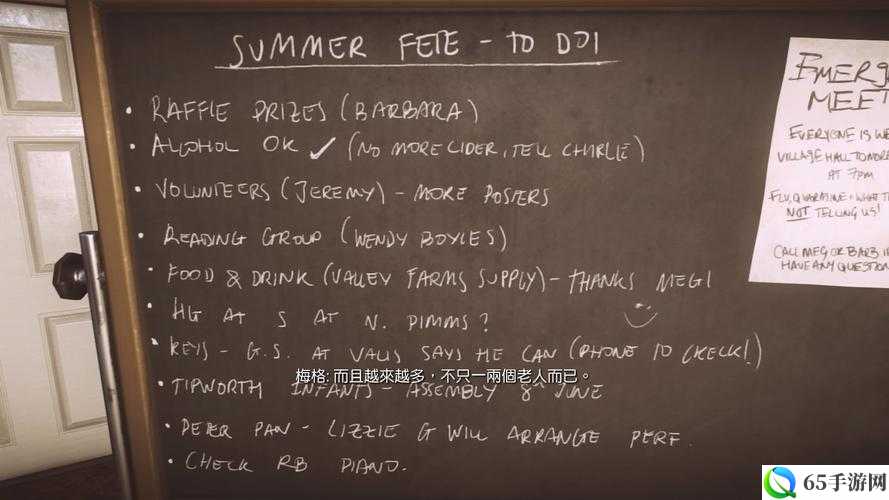 SUMMER FETE - TO DO!
• RAFFLE PRIZES (BARBARA)
• ALCOHOL OK ✓ (NO MORE CIDER, TELL CHARLIE)
• VOLUNTEERS (JEREMY) - MORE POSTERS
• READING GROUP (WENDY BOYLES)
• FOOD & DRINK (VALLEY FARMS SUPPLY) - THANKS MEG!
• HG AT S AT N. DIMMS?
• KEYS - G.S. AT VALIS SAYS HE CAN (PHONE TO CHECK!)
梅格: 而且越來越多，不只一兩個老人而已。
• TIPWORTH INFANTS - ASSEMBLY 8TH JUNE
• PETER PAN - LIZZIE G WILL ARRANGE PERF.
• CHECK RB PIANO.
EMERG
MEET
EVERYONE IS WE
VILLAGE HALL TOMORR
AT 7PM
FLU, QUARANTINE + WHAT T
NOT TELLING US!
CALL MEG OR BARB I
HAVE ANY QUESTION
65手游网